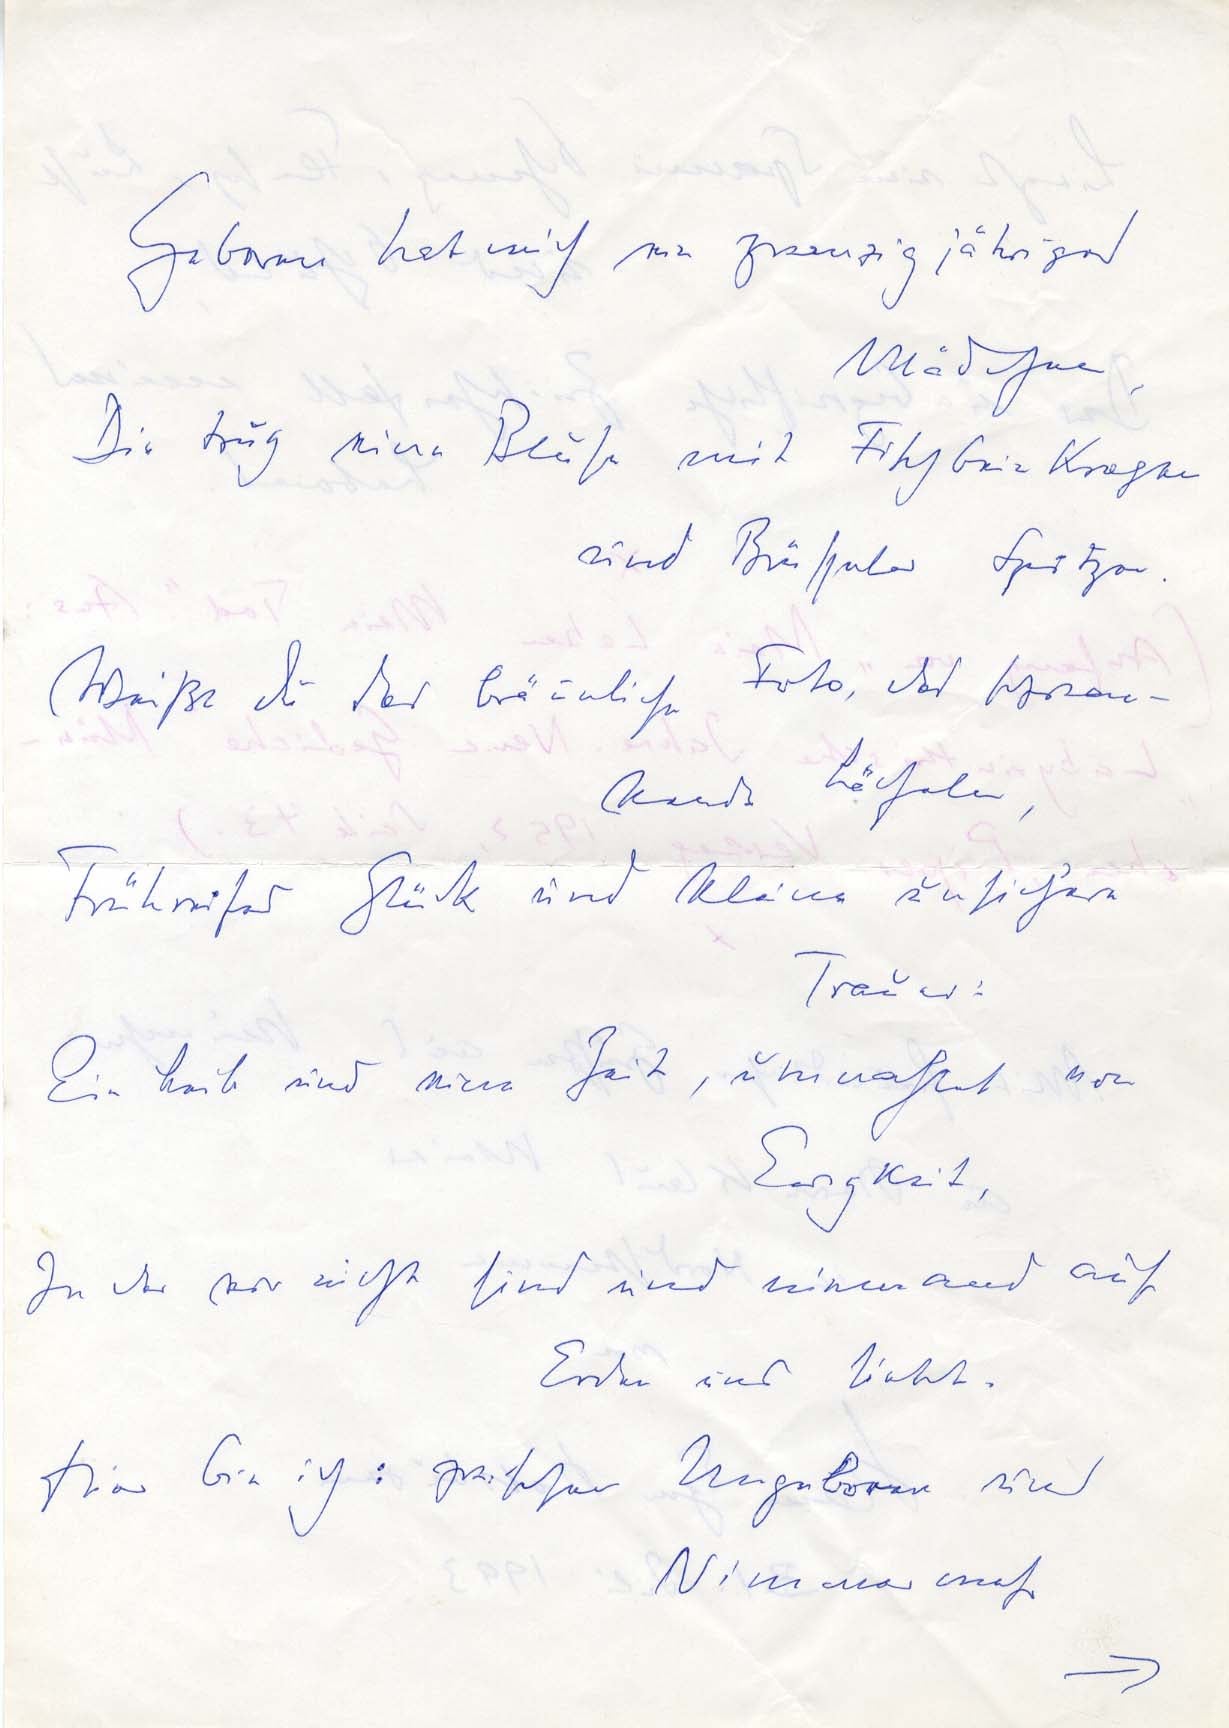 Geboren hat mich ein zwanzigjähriges
Mädchen,
Die trug eine Bluse mit Fischbein Kragen
und Brüsseler Spitzen.
Weißt du das bräunliche Foto, das schwan-
kende Lächeln,
Frühreifes Glück und kleine unsichere
Trauer:
Ein Leib und eine Zeit, umwachsen von
Ewigkeit,
In der wir nicht sind und niemand auf
Erden uns liebt.
Hier bin ich: zwischen Ungeboren und
Nimmermehr
→